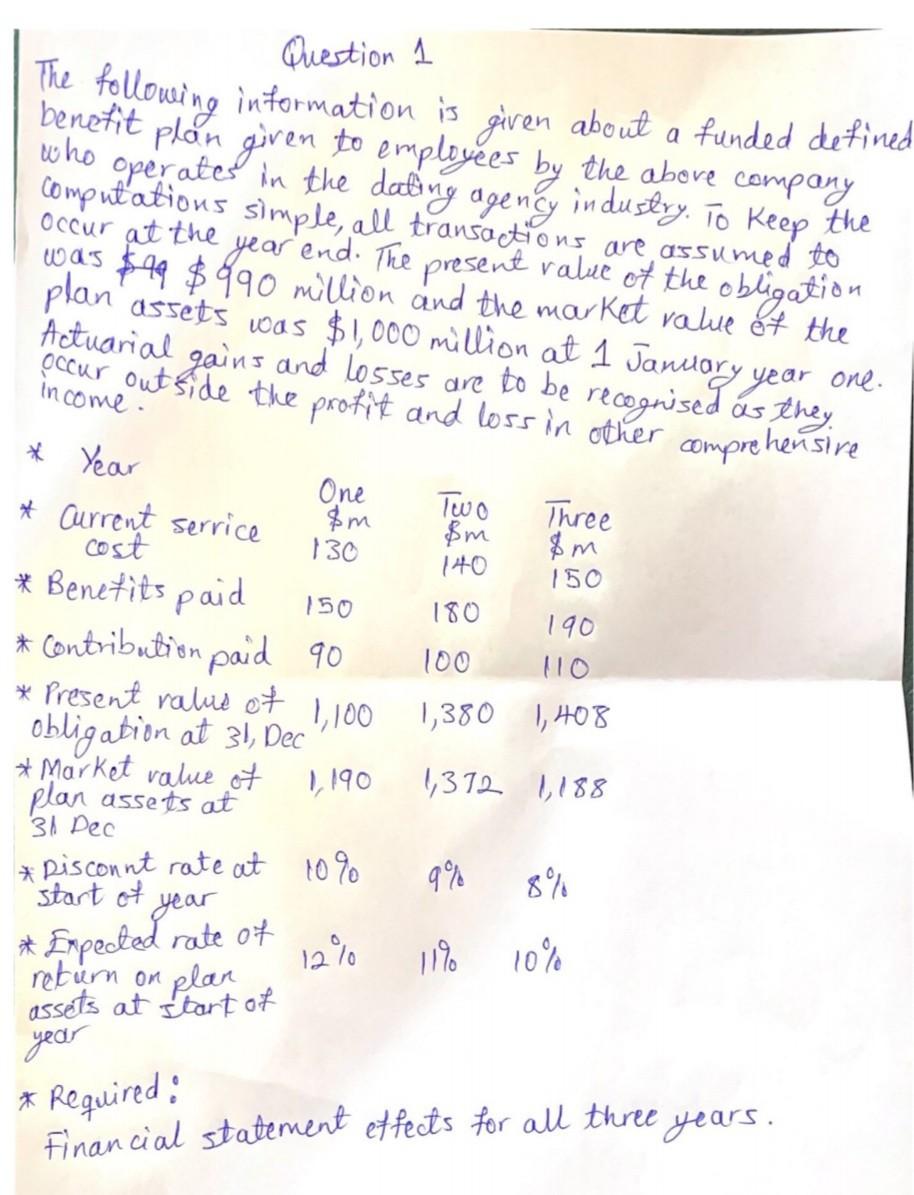 Question 1
The following information is given about a funded defined
benefit plan given to employees by the above company
who operates in the dating agency industry. To Keep the
computations simple, all transactions are assumed to
occur at the year end. The present value of the obligation
was $99 $990 million and the market value of the
plan assets was $1,000 million at 1 January year one.
Actuarial gains and losses are to be recognised as they
occur outside the profit and loss in other comprehensive
income.
* Year One Two Three
$m $m $m
* Current service cost 130 140 150
* Benefits paid 150 180 190
* Contribution paid 90 100 110
* Present value of
obligation at 31, Dec 1,100 1,380 1,408
* Market value of 1,190 1,372 1,188
plan assets at
31 Dec
* Discount rate at 10% 9% 8%
start of year
* Expected rate of 12% 11% 10%
return on plan
assets at start of
year
* Required:
Financial statement effects for all three years.